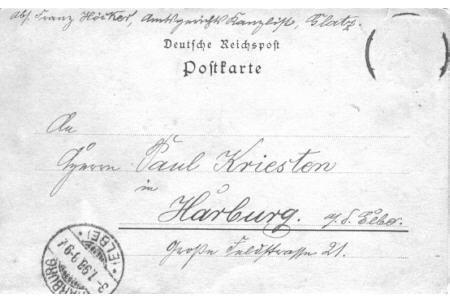 Abs. Franz Höcker, Amtsgerichts Kanzlist, Glatz.
Deutsche Reichspost
Postkarte
An
Herrn Paul Kriesten
in
Harburg. a/d. Elbe.
Große Feldstrasse 21.
HARBURG
(ELBE)